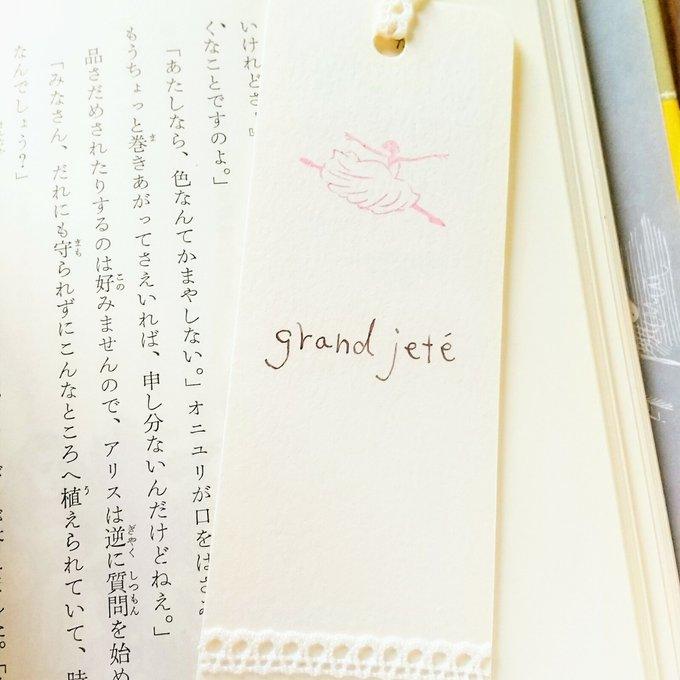 いけれどさ
くなことですのよ。」
「あたしなら、色なんてかまやしない。」オニユリが口をはさ
もうちょっと巻きあがってさえいれば、申し分ないんだけどねえ。」
品さだめされたりするのは好みませんので、アリスは逆に質問を始め
「みなさん、だれにも守られずにこんなところへ植えられていて、時
なんでしょう？」
grand jeté